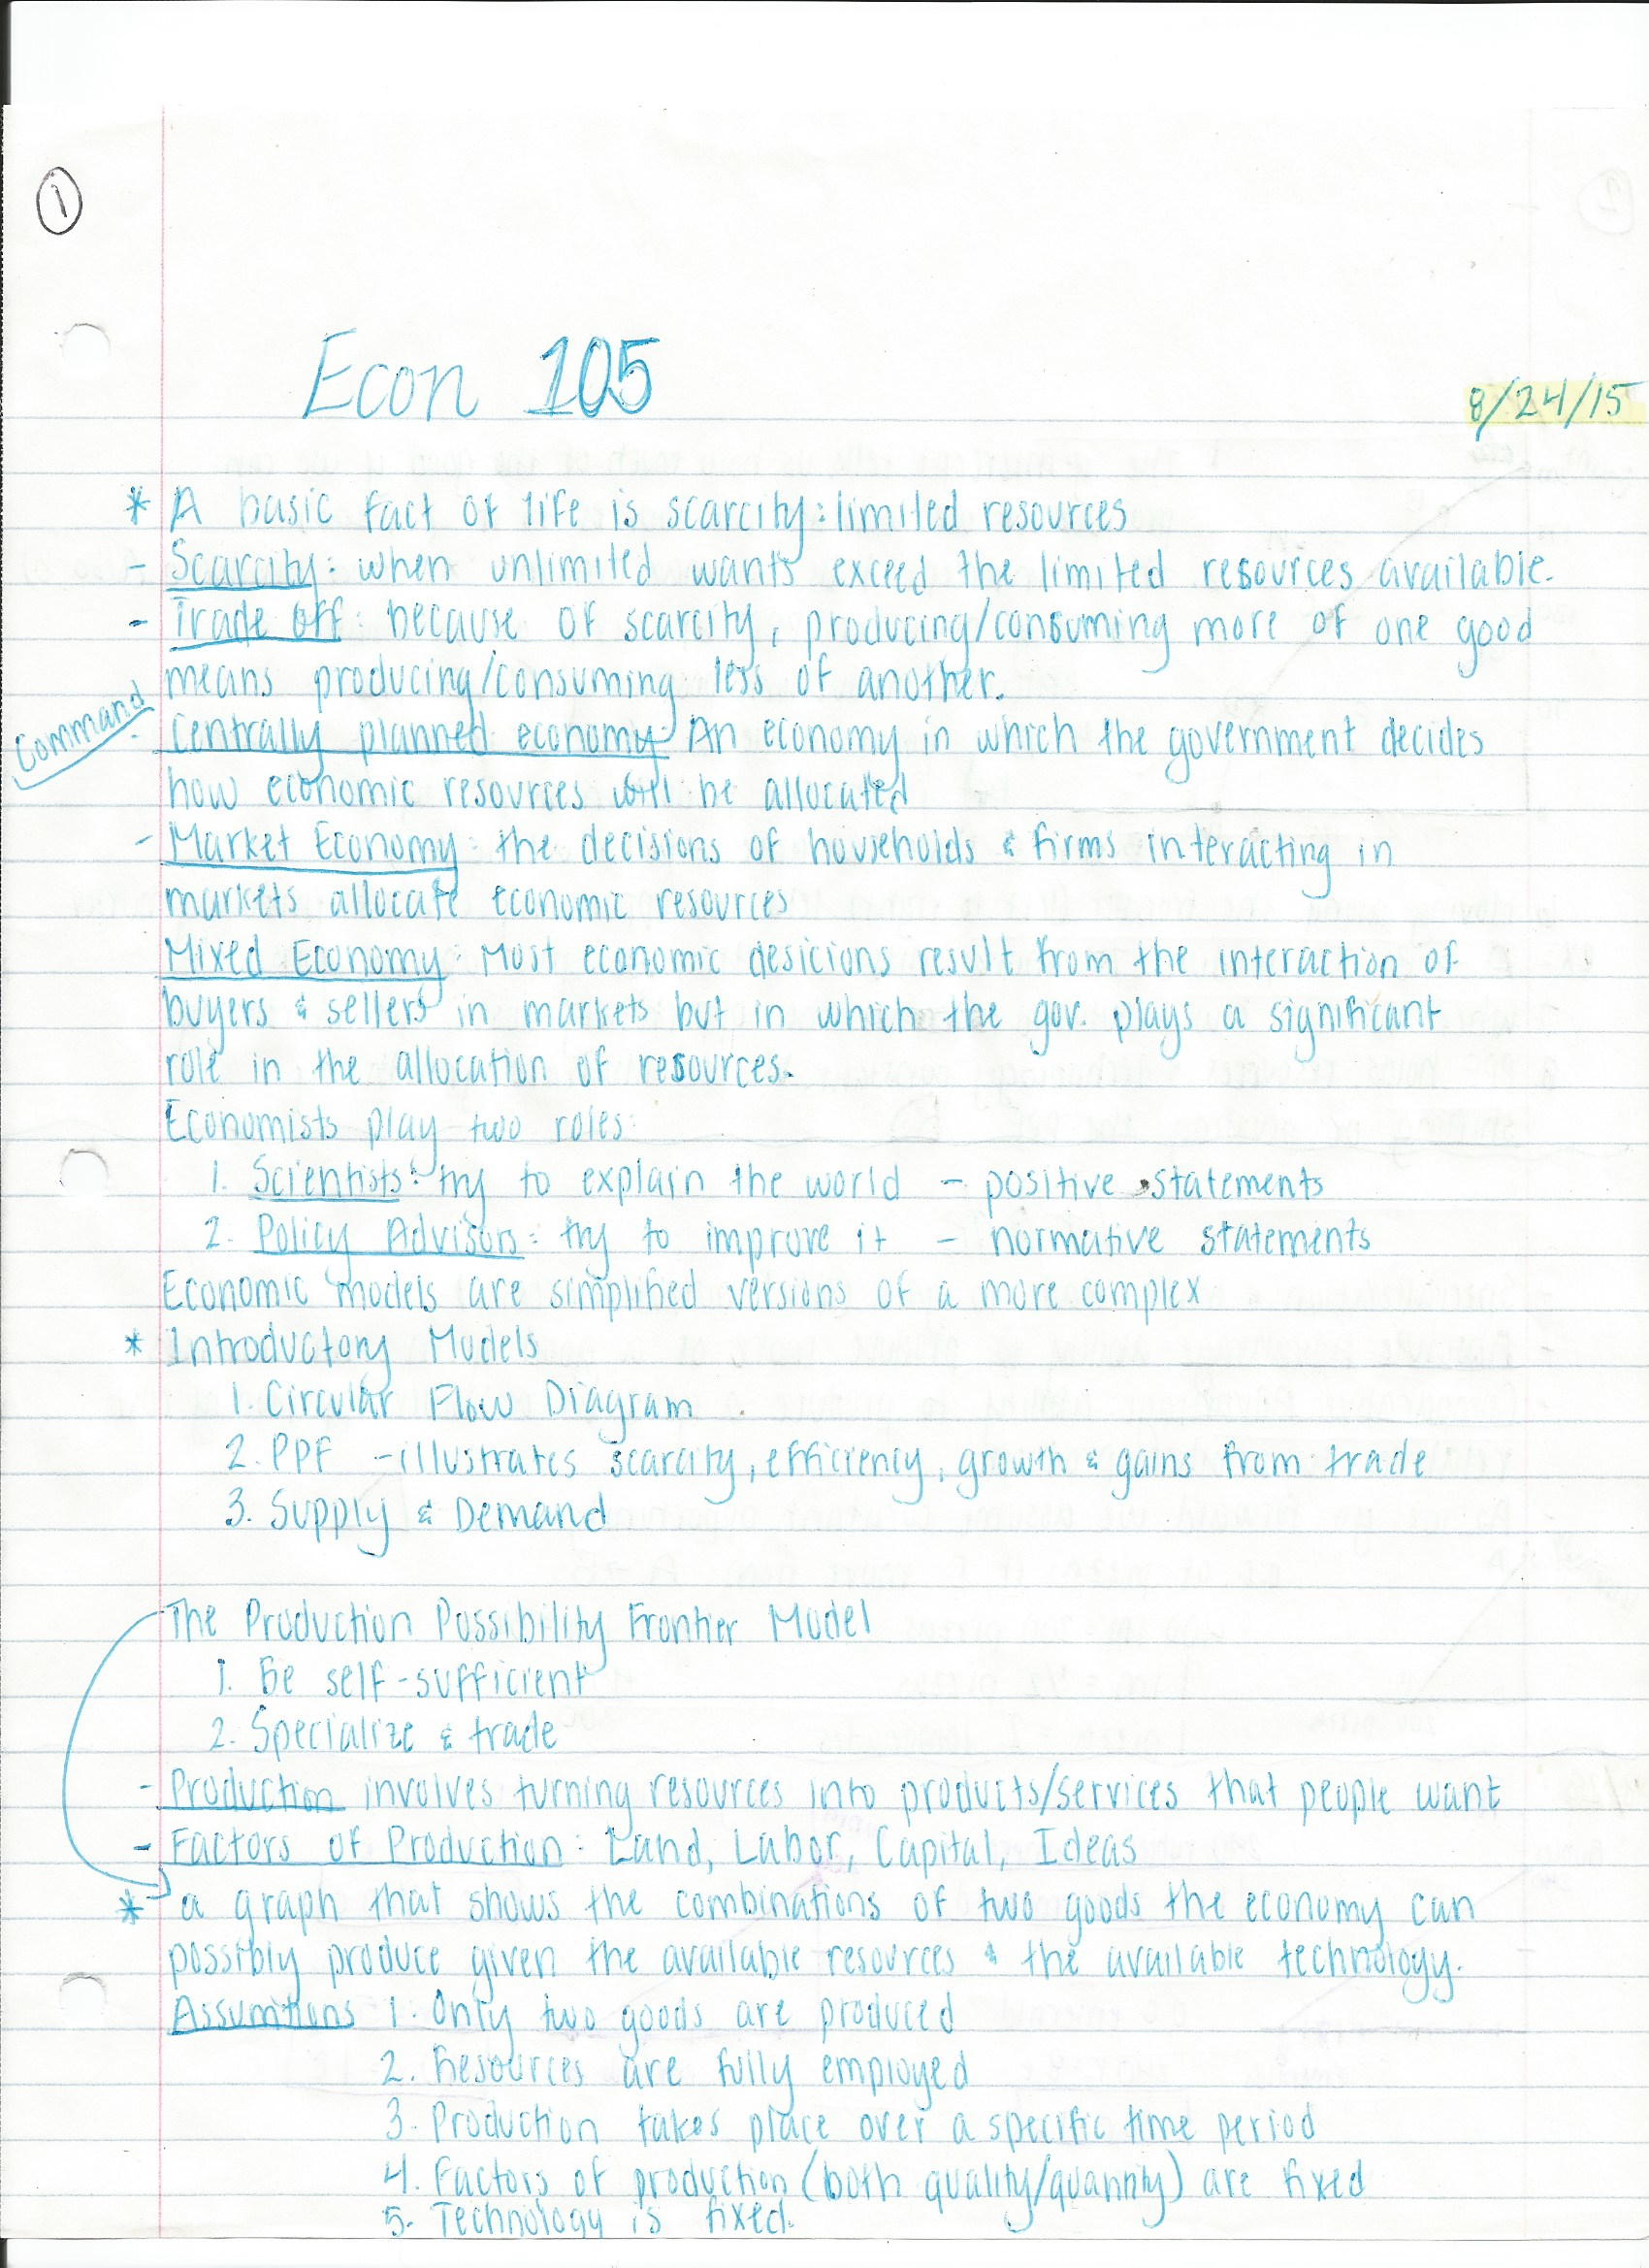 1
Econ 105
8/24/15
* A basic fact of life is scarcity: limited resources
- Scarcity: when unlimited wants exceed the limited resources available.
- Trade off: because of scarcity, producing/consuming more of one good
means producing/consuming less of another.
Command
- Centrally planned economy: An economy in which the government decides
how economic resources will be allocated
- Market Economy: the decisions of households & firms interacting in
markets allocate economic resources
Mixed Economy: Most economic desicions result from the interaction of
buyers & sellers in markets but in which the gov. plays a significant
role in the allocation of resources.
Economists play two roles:
1. Scientists: try to explain the world - positive statements
2. Policy Advisors: try to improve it - normative statements
Economic models are simplified versions of a more complex
* Introductory Models
1. Circular Flow Diagram
2. PPF - illustrates scarcity, efficiency, growth & gains from trade
3. Supply & Demand
The Production Possibility Frontier Model
1. Be self-sufficient
2. Specialize & trade
- Production involves turning resources into products/services that people want
- Factors of Production: Land, Labor, Capital, Ideas
* a graph that shows the combinations of two goods the economy can
possibly produce given the available resources & the available technology.
Assumtions 1. Only two goods are produced
2. Resources are fully employed
3. Production takes place over a specific time period
4. Factors of production (both quality/quantity) are fixed
5. Technology is fixed.